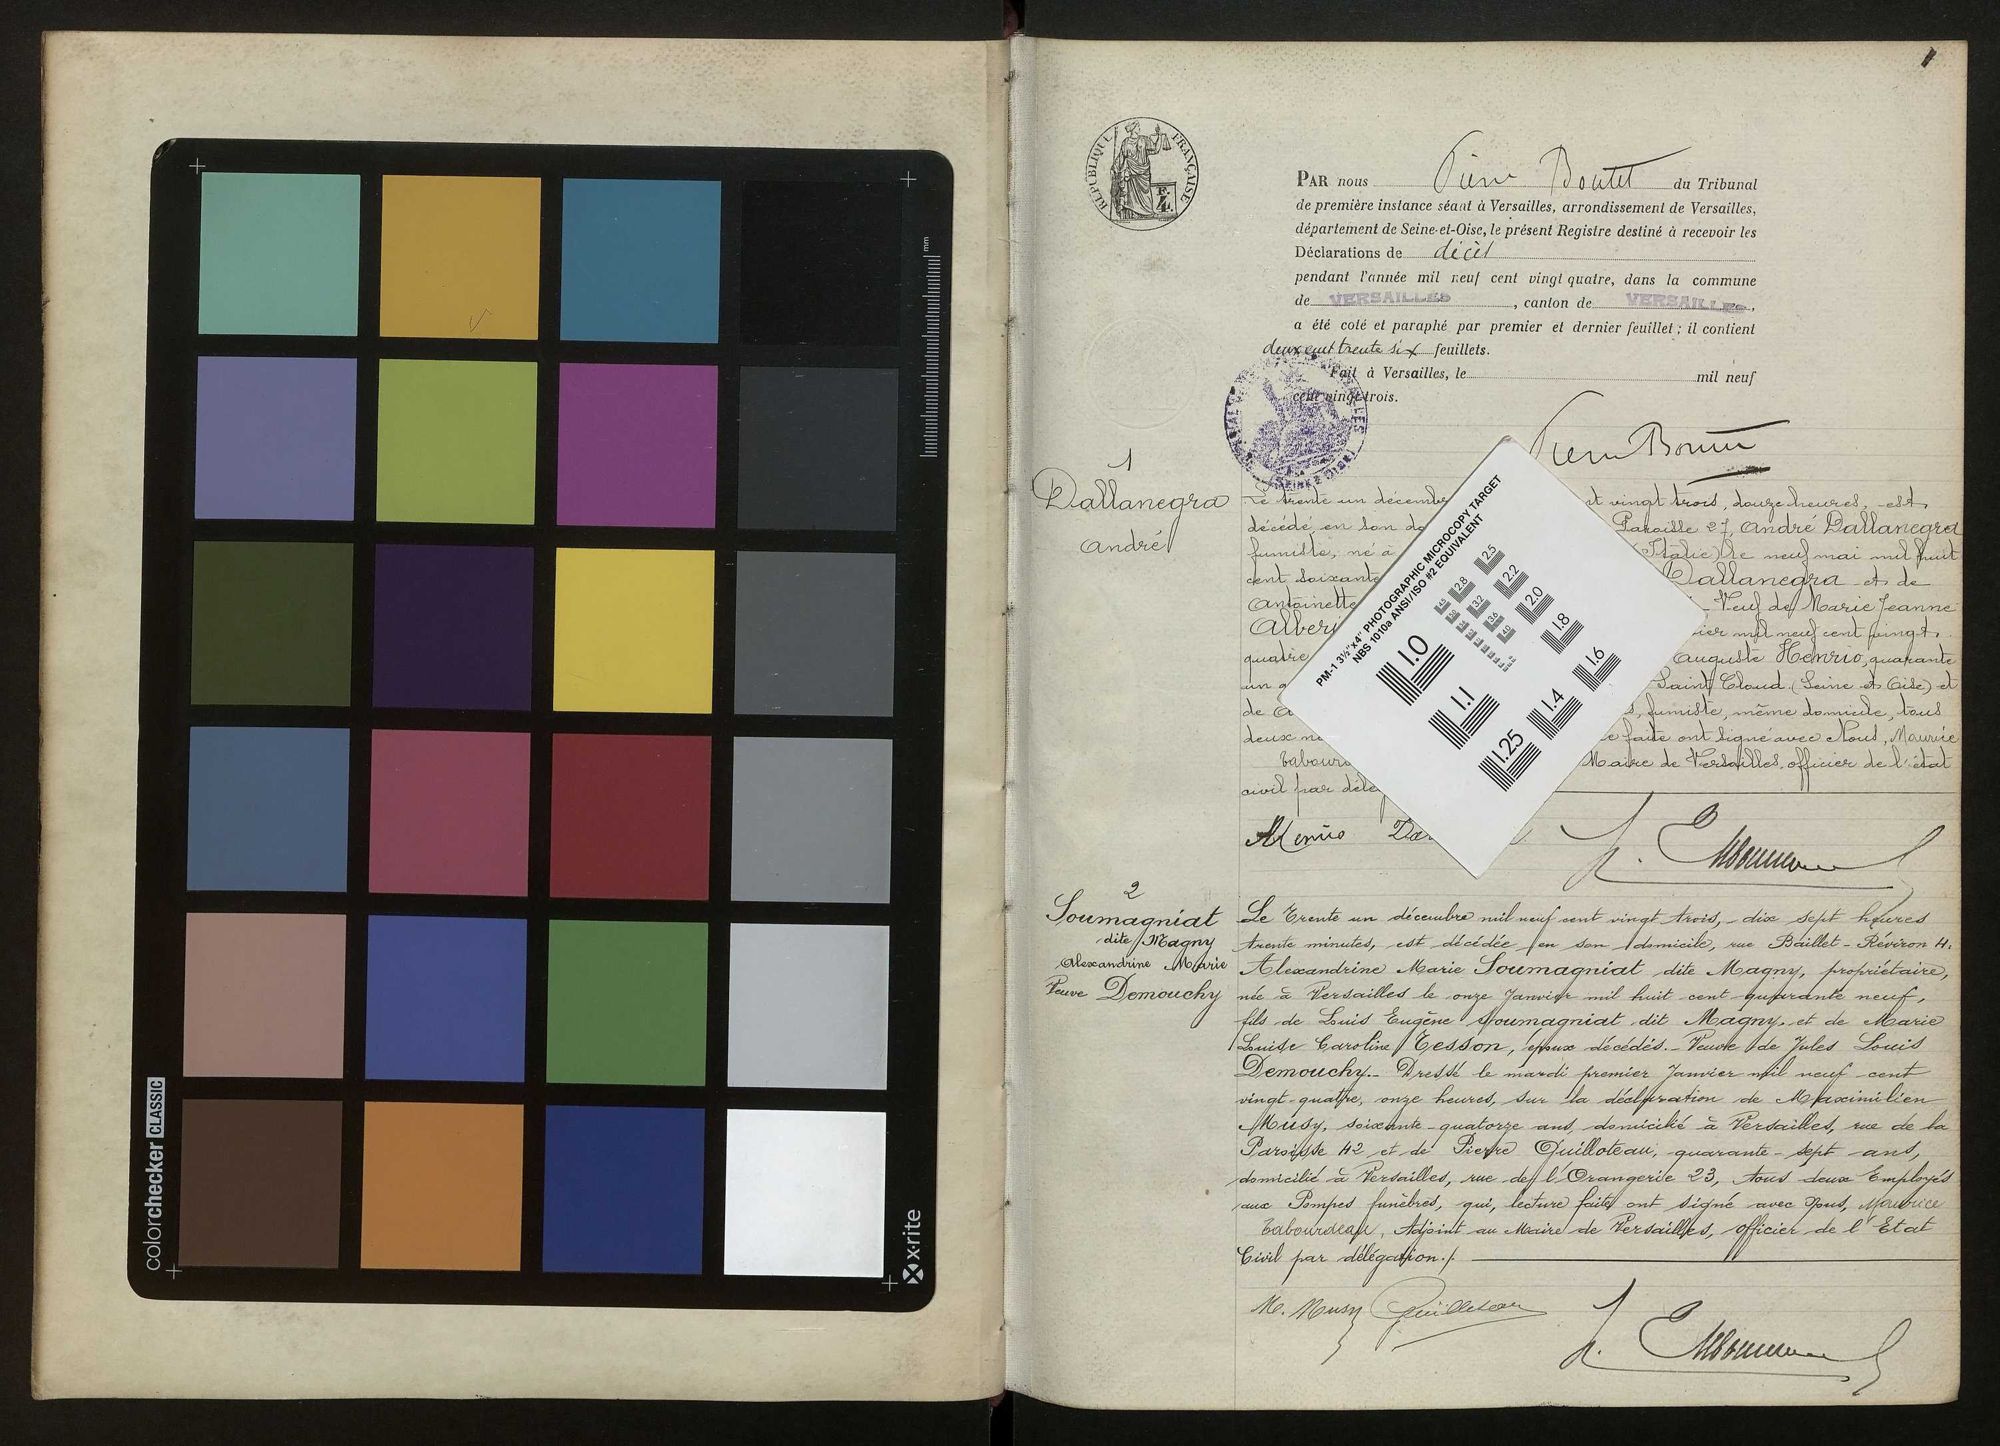 mm
colorchecker CLASSIC
x-rite
1
RÉPUBLIQUE FRANÇAISE
F.
4.
PAR nous Pierre Boutet du Tribunal
de première instance séant à Versailles, arrondissement de Versailles,
département de Seine-et-Oise, le présent Registre destiné à recevoir les
Déclarations de décès
pendant l'année mil neuf cent vingt quatre, dans la commune
de VERSAILLES, canton de VERSAILLES,
a été coté et paraphé par premier et dernier feuillet ; il contient
deux cent trente six feuillets.
Fait à Versailles, le mil neuf
cent vingt-trois.
1
Dallanegra
André
Le trente un décembre nt vingt trois, douze heures, est
décédé en son do Paroisse 27, André Dallanegra
fumiste, né à (Italie) le neuf mai mil huit
cent soixante Dallanegra et de
Antoinette Veuf de Marie Jeanne
Alberi vier mil neuf cent vingt
quatre Auguste Henrio, quarante
un a Saint Cloud (Seine et Oise) et
de fumiste, même domicile, tous
deux ne faite ont signé avec Nous, Maurice
Tabourd Maire de Versailles, officier de l'état
civil par délé
Henrio
PM-1 3½"x4" PHOTOGRAPHIC MICROCOPY TARGET
NBS 1010a ANSI/ISO #2 EQUIVALENT
1.0
1.1
1.25
1.4
1.6
1.8
2.0
2.2
2.5
2.8
3.2
3.6
4.0
4.5
2
Soumagniat
dite Magny
Alexandrine Marie
Veuve Demouchy
Le Trente un décembre mil neuf cent vingt trois, dix sept heures
trente minutes, est décédée en son domicile, rue Baillet-Réviron 4.
Alexandrine Marie Soumagniat dite Magny, propriétaire,
née à Versailles le onze Janvier mil huit cent quarante neuf,
fils de Louis Eugène Soumagniat dit Magny, et de Marie
Louise Caroline Tesson, époux décédés.- Veuve de Jules Louis
Demouchy.- Dressé le mardi premier Janvier mil neuf cent
vingt-quatre, onze heures, sur la déclaration de Maximilien
Musy, soixante-quatorze ans, domicilié à Versailles, rue de la
Paroisse 42 et de Pierre Quilloteau, quarante-sept ans,
domicilié à Versailles, rue de l'Orangerie 23, tous deux Employés
aux Pompes funèbres, qui, lecture faite, ont signé avec Nous, Maurice
Tabourdeau, Adjoint au Maire de Versailles, officier de l'Etat
Civil par délégation./.
M. Musy Quilloteau